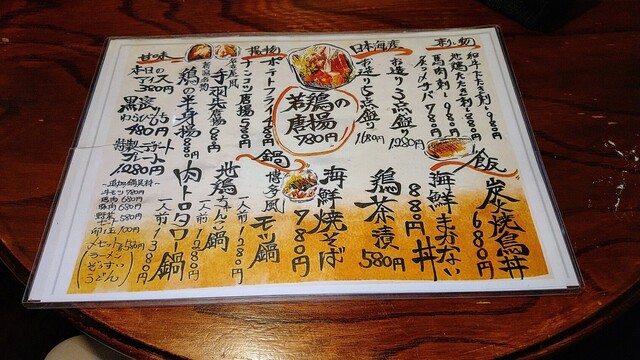 刺し物
和牛たたき刺し980円
地鶏たたき刺し880円
馬肉刺し980円
日本海産
お造り3点盛り1280円
お造り5点盛り1680円
若鶏の
唐揚
780円
揚物
ポテトフライ480円
ナンコツ唐揚580円
名古屋風
手羽先唐揚680円
新潟名物
鶏の半身揚
甘味
本日の
アイス
380円
黒蜜
わらびもち
480円
特製
プレート
1280円
飯
炭火焼鳥丼
680円
海鮮まかない丼
880円
鶏茶漬
580円
海鮮焼そば
780円
鍋
博多風
モツ鍋
一人前1280円
地鶏ちゃんこ鍋
一人前1280円
肉トロタワー鍋
一人前1380円
追加鍋具材
牛モツ780円
鶏肉680円
豚肉680円
野菜セット580円
卵1玉100円
〆セット各580円
(ラーメン
ぞうすい
うどん)